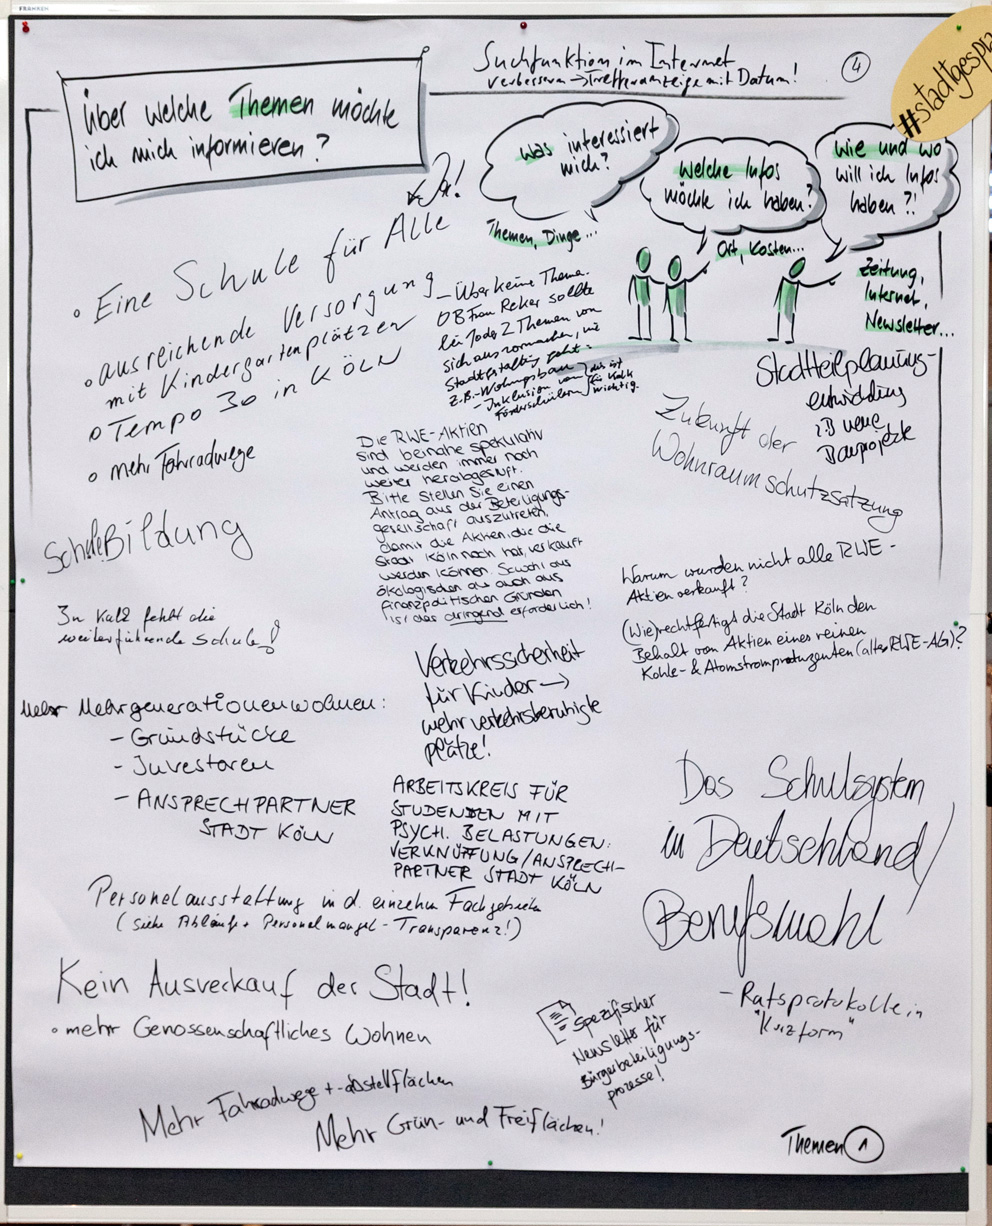 FRANKEN
Suchfunktion im Internet
verbessern → Trefferanzeige mit Datum!
4
#stadtgesprä
Über welche Themen möchte
ich mich informieren?
Was interessiert
mich?
Themen, Dinge...
Welche Infos
möchte ich haben?
Ort, Kosten...
Wie und wo
will ich Infos
haben?!
Zeitung,
Internet,
Newsletter...
Ja!
• Eine Schule für Alle
• ausreichende Versorgung
mit Kindergartenplätzen
• Tempo 30 in KÖLN
• mehr Fahradwege
– Über keine Thema.
OB Frau Reker sollte
sich
Stadtgestaltung geht:
z.B. - Wohnungsbau
- Inklusion von
Förderschülern
das ist
für Kalk
wichtig.
Stadtteilplanung-
entwicklung
z.B. neue
Bauprojekte
Zukunft der
Wohnraumschutzsatzung
Die RWE-Aktien
sind beinahe spekulativ
und werden immer noch
weiter herabgestuft.
Bitte stellen Sie einen
Antrag aus der Beteiligungs-
gesellschaft auszutreten,
damit die Aktien, die die
Stadt Köln noch hat, verkauft
werden können. Sowohl aus
ökologischen als auch aus
finanzpolitischen Gründen
ist das dringend erforderlich!
Schule Bildung
In Kalk fehlt die
weiterführende Schule!
Warum wurden nicht alle RWE-
Aktien verkauft?
(Wie) rechtfertigt die Stadt Köln den
Behalt von Aktien eines reinen
Kohle- & Atomstromproduzenten (alte RWE-AG)?
Verkehrssicherheit
für Kinder →
mehr verkehrsberuhigte
plätze!
Mehr Mehrgenerationenwohnen:
- Grundstücke
- Investoren
- ANSPRECHPARTNER
STADT KÖLN
ARBEITSKREIS FÜR
STUDENDEN MIT
PSYCH. BELASTUNGEN:
VERKNÜFUNG/ANSPRECH-
PARTNER STADT KÖLN
Das Schulsystem
in Deutschland/
Berufswahl
Personalausstattung in d. einzelnen Fachgebieten
(siehe Abläufe + Personalmangel - Transparenz!)
Kein Ausverkauf der Stadt!
• mehr Genossenschaftliches Wohnen
Spezifischer
Newsletter für
Bürgerbeteiligungs-
prozesse!
- Ratsprotokolle in
"Kurzform"
Mehr Fahrradwege + -abstellflächen
Mehr Grün- und Freiflächen!
Themen 1